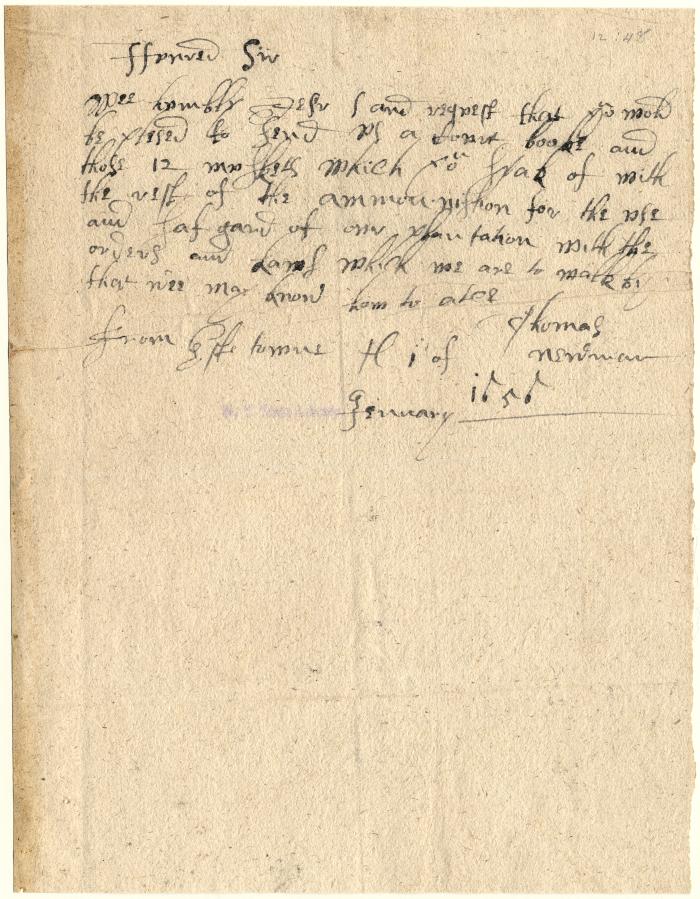 12:48
Sir
Wee humbly desir and request that yo wold
be plesed to send vs a court booke and
those 12 muskets which you spak of with
the rest of the ammonishon for the vse
and saf gard of our plantation with the
orders and laws which we are to walk by
that wee may know how to
Thomas
From townne 1 of newman
Jenuary 1656